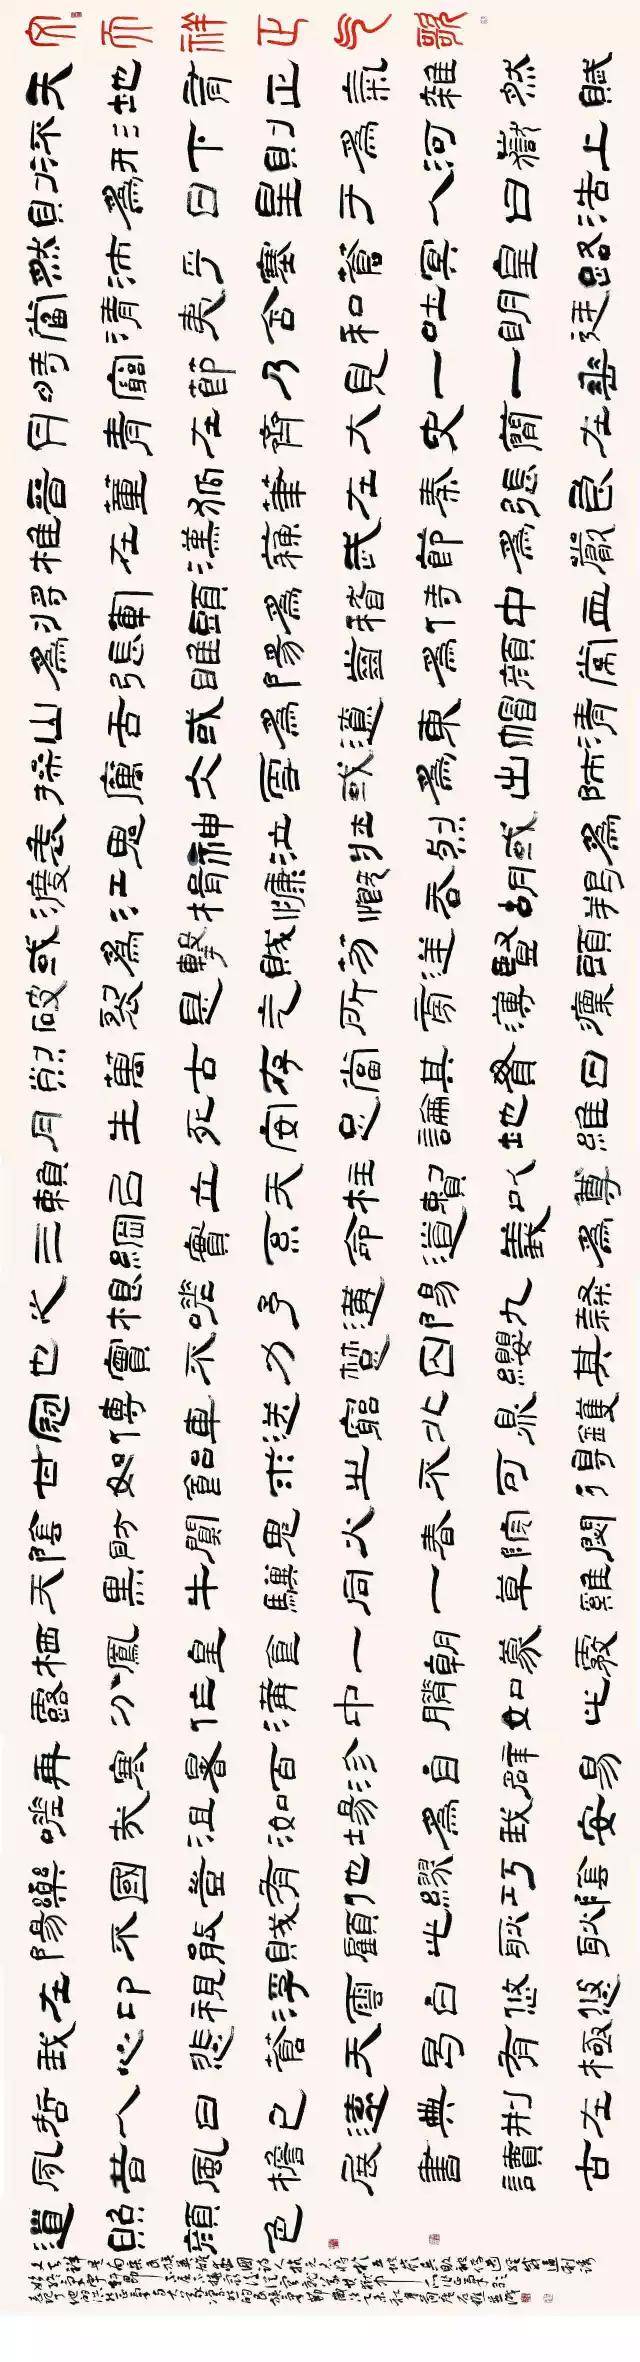 文天祥正气歌
天地有正氣雜然賦
流形下則為河嶽上
則為日星於人曰浩
然沛乎塞蒼冥皇路
當清夷含和吐明庭
時窮節乃見一一垂
丹青在齊太史簡在
晉董狐筆在秦張良
椎在漢蘇武節為嚴
將軍頭為嵇侍中血
為張睢陽齒為顏常
山舌或為遼東帽清
操厲冰雪或為出師
表鬼神泣壯烈或為
渡江楫慷慨吞胡羯
或為擊賊笏逆豎頭
破裂是氣所旁薄凜
烈萬古存當其貫日
月生死安足論地維
賴以立天柱賴以尊
三綱實繫命道義為
之根嗟予遘陽九隸
也實不力楚囚纓其
冠傳車送窮北鼎鑊
甘如飴求之不可得
陰房闃鬼火春院閟
天黑牛驥同一皂雞
棲鳳凰食一朝蒙霧
露分作溝中瘠如此
再寒暑百沴自辟易
嗟哉沮洳場為我安
樂國豈有他繆巧陰
陽不能賊顧此耿耿
在仰視浮雲白悠悠
我心悲蒼天曷有極
哲人日已遠典刑在
夙昔風簷展書讀古
道照顏色